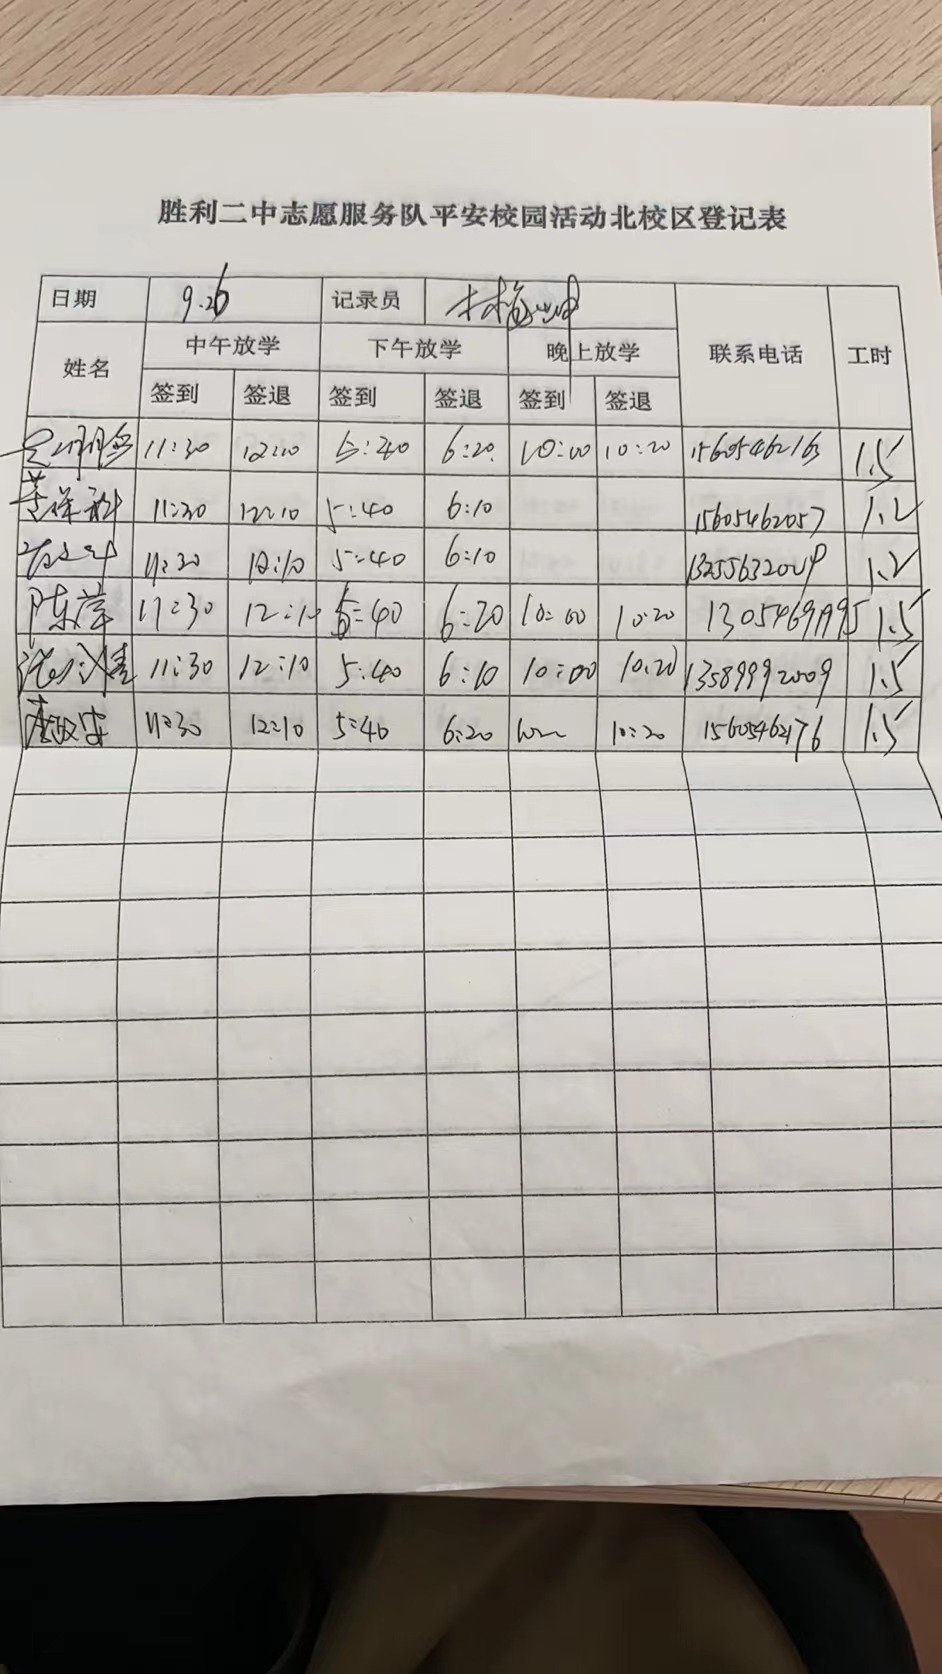 胜利二中志愿服务队平安校园活动北校区登记表
日期 9.26 记录员
姓名 中午放学 下午放学 晚上放学 联系电话 工时
签到 签退 签到 签退 签到 签退
11:30 12:10 5:40 6:20 10:00 10:20 15605462163 1.5
11:30 12:10 5:40 6:10 15605462057 1.2
11:30 12:10 5:40 6:10 13255632009 1.2
陈萍 11:30 12:10 5:40 6:20 10:00 10:20 1.5
11:30 12:10 5:40 6:10 10:00 10:20 13589992009 1.5
11:30 12:10 5:40 6:20 10:20 15605462176 1.5